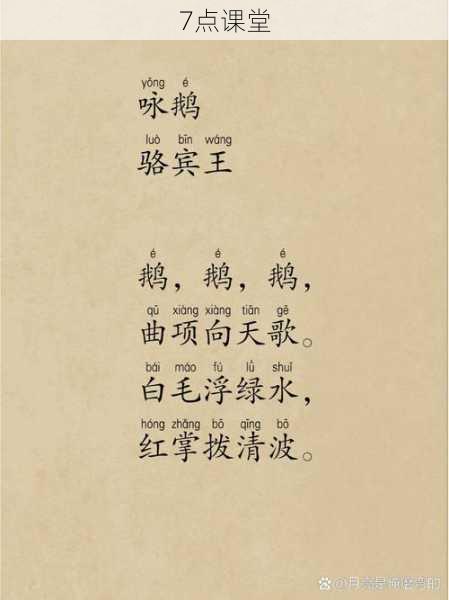 7点课堂
yǒng é
咏鹅
luò bīn wáng
骆宾王
é é é
鹅，鹅，鹅，
qū xiàng xiàng tiān gē
曲项向天歌。
bái máo fú lǜ shuǐ
白毛浮绿水，
hóng zhǎng bō qīng bō
红掌拨清波。